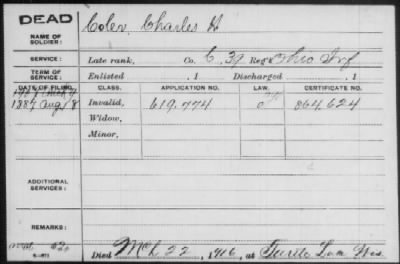 DEAD
NAME OF SOLDIER: Coler, Charles H
SERVICE: Late rank, Co. C, 39 Reg't Ohio Inf
TERM OF SERVICE: Enlisted , 1 Discharged , 1
DATE OF FILING. CLASS. APPLICATION NO. LAW. CERTIFICATE NO.
1887 Aug 8 Invalid, 619.774 864.624
Widow,
Minor,
ADDITIONAL SERVICES:
REMARKS:
Died Mch 22, 1916, at Turtle Lake Wis.